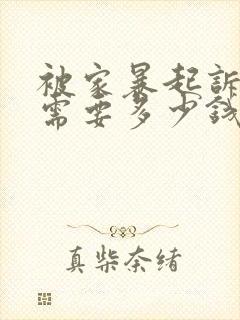 被家暴起訴
需要多少錢
真柴奈緒